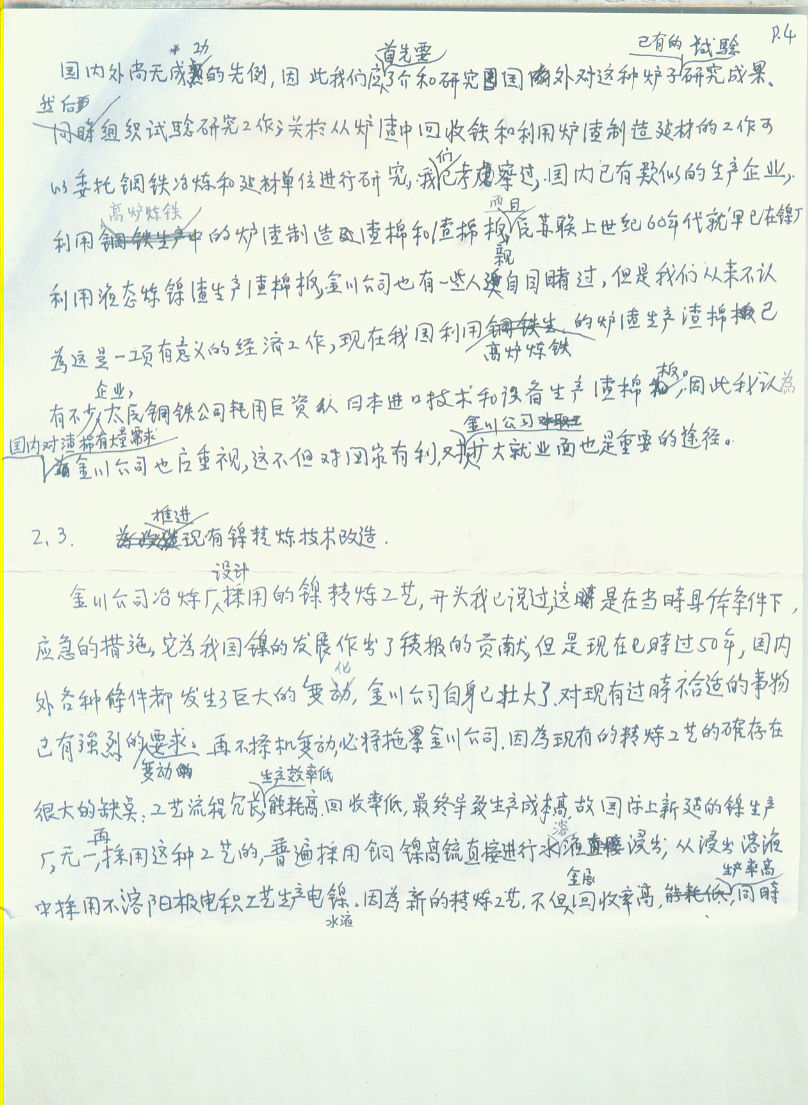 P.4
国内外尚无成功的先例,因此我们应首先要了介和研究国内外对这种炉子已有的试验研究成果、
然后再组织试验研究工作;关於从炉渣中回收铁和利用炉渣制造建材的工作可
以委托钢铁冶炼和建材单位进行研究,我们已考察过,国内已有类似的生产企业,
利用高炉炼铁的炉渣制造渣棉和渣棉板,而且苏联上世纪60年代就早已在镍厂
利用液态炼镍渣生产渣棉板,金川公司也有一些人亲自目睹过,但是我们从来不认
為这是一项有意义的经济工作,现在我国利用高炉炼铁的炉渣生产渣棉已
有不少企业,太原钢铁公司耗用巨资从日本进口技术和设备生产渣棉板。因此我认為
国内对渣棉有大量需求
金川公司也应重视,这不但对国家有利,对金川公司扩大就业面也是重要的途径。
2.3. 推进现有镍精炼技术改造.
金川公司冶炼厂设计採用的镍精炼工艺,开头我已说过,这是在当時具体条件下,
应急的措施,它為我国镍的发展作出了积极的贡献,但是现在已時过50年,国内
外各种條件都发生了巨大的变化,金川公司自身已壮大了.对现有过時不合适的事物
已有強烈的变动要求。再不择机变动,必将拖累金川公司.因為现有的精炼工艺的确存在
很大的缺点:工艺流程冗长,生产效率低,能耗高,回收率低,最终导致生产成本高,故国际上新建的镍生产
厂,无一再採用这种工艺的,普遍採用铜镍高锍直接进行水溶液浸出,从浸出溶液
中採用不溶阳极电积工艺生产电镍.因為新的精炼工艺.不但金属回收率高,生产率高,同時
水溶